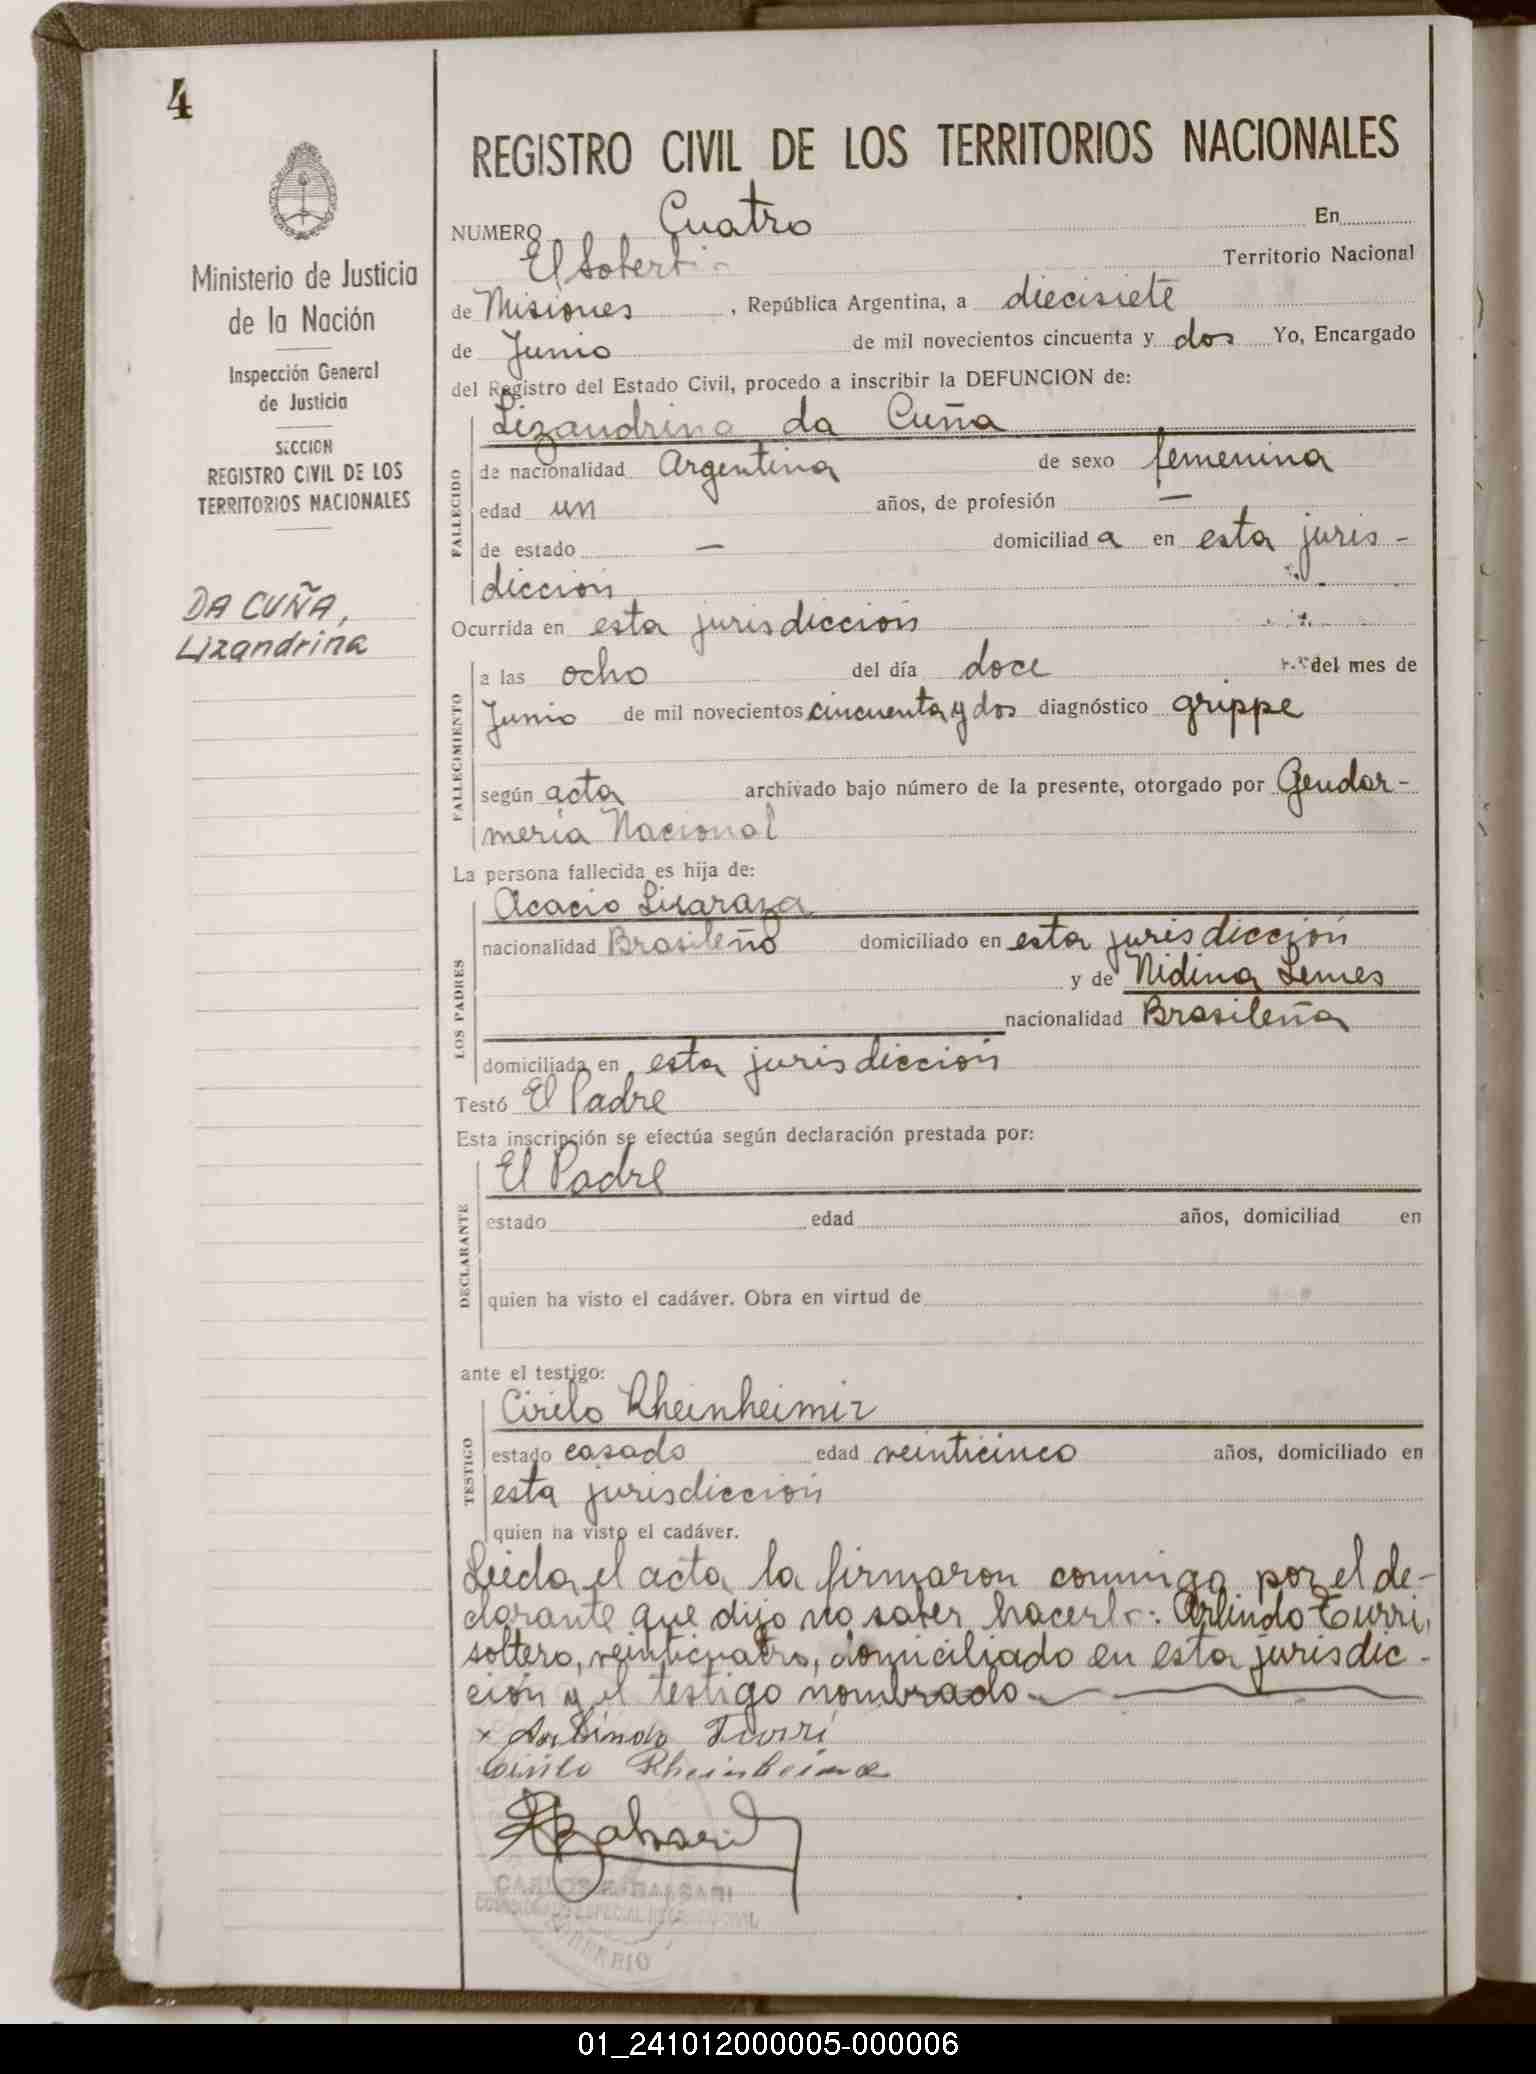 4
Ministerio de Justicia
de la Nación
Inspección General
de Justicia
SECCION
REGISTRO CIVIL DE LOS
TERRITORIOS NACIONALES
DA CUÑA,
Lizandrina
REGISTRO CIVIL DE LOS TERRITORIOS NACIONALES
NUMERO Cuatro En
El Soberbio Territorio Nacional
de Misiones, República Argentina, a diecisiete
de Junio de mil novecientos cincuenta y dos Yo, Encargado
del Registro del Estado Civil, procedo a inscribir la DEFUNCION de:
FALLECIDO
Lizandrina da Cuña
de nacionalidad Argentina de sexo femenina
edad un años, de profesión —
de estado — domiciliad a en esta juris-
dicción
Ocurrida en esta jurisdicción
FALLECIMIENTO
a las ocho del día doce del mes de
Junio de mil novecientos cincuenta y dos diagnóstico grippe
según acta archivado bajo número de la presente, otorgado por Gendar-
mería Nacional
La persona fallecida es hija de:
LOS PADRES
Acacio
nacionalidad Brasileño domiciliado en esta jurisdicción
y de Nidina Lemes
nacionalidad Brasileña
domiciliada en esta jurisdicción
Testó El Padre
Esta inscripción se efectúa según declaración prestada por:
DECLARANTE
El Padre
estado edad años, domiciliad en
quien ha visto el cadáver. Obra en virtud de
ante el testigo:
TESTIGO
Cirilo Rheinheimir
estado casado edad veinticinco años, domiciliado en
esta jurisdicción
quien ha visto el cadáver.
Leida el acta la firmaron conmigo por el de-
clarante que dijo no saber hacerlo: Arlindo Turri,
soltero, veinticuatro, domiciliado en esta jurisdic-
ción y el testigo nombrado
x Arlindo Turri
Cirilo
SOBERBIO
01_241012000005-000006